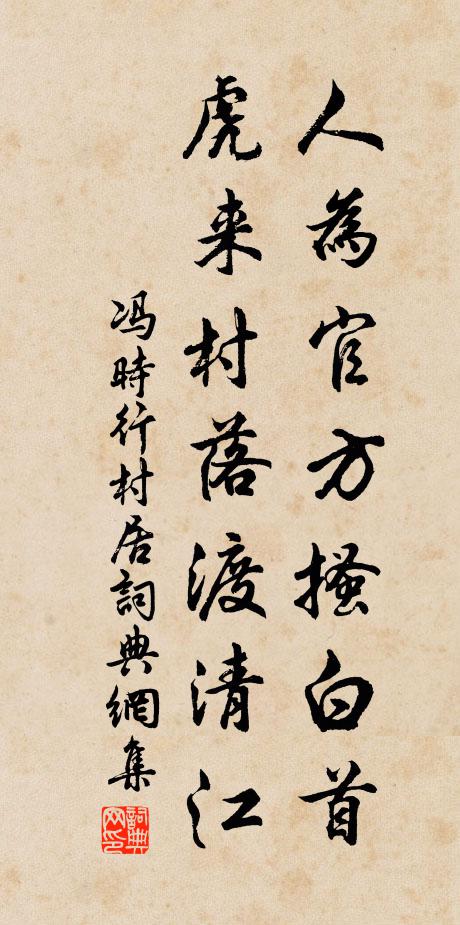 人為官方搔白首
虎来村落渡清江
冯時行村居詞典網集
詞典网印